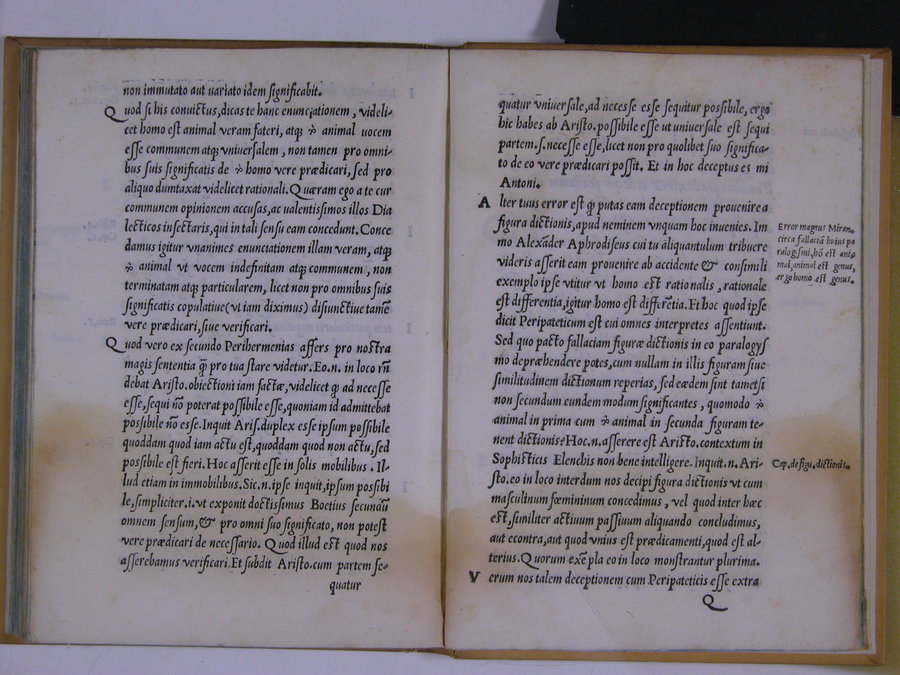 non immutato aut uariato idem significabit.
Quod si his conuictus, dicas te hanc enunciationem, videli-
cet homo est animal veram fateri, atq; animal uocem
esse communem atq; vniuersalem, non tamen pro omni-
bus suis significatis de homo vere prædicari, sed pro
aliquo dumtaxat videlicet rationali. Quæram ego a te cur
communem opinionem accusas, ac ualentissimos illos Dia
lecticos insectaris, qui in tali sensu eam concedunt. Conce
damus igitur vnanimes enunctationem illam veram, atq;
animal vt vocem indefinitam atq; communem, non
terminatam atq; particularem, licet non pro omnibus suis
significatis copulatiue (vt iam diximus) disiunctiue tamē
vere prædicari, siue verificari.
Quod vero ex secundo Perihermenias affers pro nostra
magis sententia q̃ pro tua stare videtur. Eo.n. in loco rñ
debat Aristo. obiectioni iam factæ, videlicet ꝙ ad necesse
esse, sequi nō poterat possibile esse, quoniam id admittebat
possibile nō esse. Inquit Aris. duplex esse ipsum possibile
quoddam quod iam actu est, quoddam quod non actu, sed
possibile est fieri. Hoc asserit esse in solis mobilibus. Il-
lud etiam in immobilibus. Sic.n. ipse inquit, ipsum possibi
le, simpliciter.i. vt exponit doctissimus Boetius secundū
omnem sensum, & pro omni suo significato, non potest
vere prædicari de necessario. Quod illud est quod nos
asserebamus verificari. Et subdit Aristo. cum partem se-
quatur
quatur vniuersale, ad necesse esse sequitur possibile, ergo
hic habes ab Aristo. possibile esse ut uniuersale est sequi
partem.s. necesse esse, licet non pro quolibet suo significa-
to de eo vere prædicari possit. Et in hoc deceptus es mi
Antoni.
Alter tuus error est ꝙ putas eam deceptionem prouenire a
figura dictionis, apud neminem vnquam hoc inuenies. Im
mo Alexāder Aphrodiseus cui tu aliquantulum tribuere
videris asserit eam prouenire ab accidente & consimili
exemplo ipse vtitur vt homo est rationalis, rationale
est differentia, igitur homo est differētia. Et hoc quod ipse
dicit Peripateticum est cui omnes interpretes assentiunt.
Sed quo pacto fallaciam figuræ dictionis in eo paralogys
mo depræhendere potes, cum nullam in illis figuram siue
similitudinem dictionum reperias, sed eædem sint tametsi
non secundum eundem modum significantes, quomodo
animal in prima cum animal in secunda figuram te-
nent dictionis? Hoc.n. asserere est Aristo. contextum in
Sophisticis Elenchis non bene intelligere. Inquit.n. Ari-
sto. eo in loco interdum nos decipi figura dictionis vt cum
masculinum fœmininum concedimus, vel quod inter hæc
est, similiter actiuum passiuum aliquando concludimus,
aut econtra, aut quod vnius est prædicamenti, quod est al-
terius. Quorum exēpla eo in loco monstrantur plurima.
Verum nos talem deceptionem cum Peripateticis esse extra
Q
Error magnus Miran.
circa fallaciā huius pa
ralogismi, hō est ani-
mal, animal est genus,
ergo homo est genus.
Cap. de figu. dictionis.